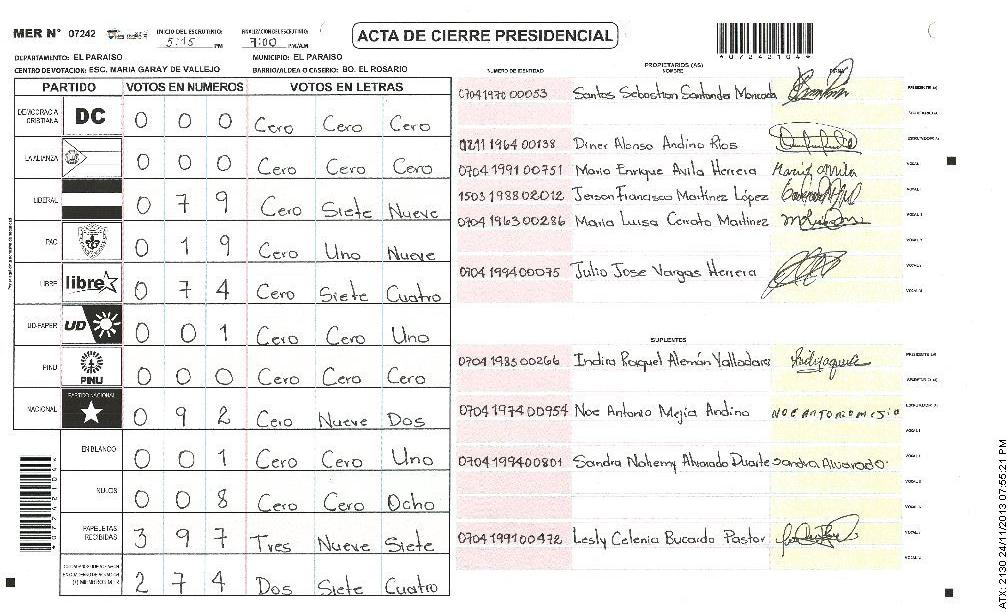 MER N° 07242
INICIO DEL ESCRUTINIO: 5:15 PM
FINALIZACION DEL ESCRUTINIO: 7:00 PM/AM
ACTA DE CIERRE PRESIDENCIAL
*07242104*
DEPARTAMENTO: EL PARAISO MUNICIPIO: EL PARAISO
CENTRO DE VOTACION: ESC. MARIA GARAY DE VALLEJO BARRIO/ALDEA O CASERIO: BO. EL ROSARIO
PARTIDO VOTOS EN NUMEROS VOTOS EN LETRAS
DEMOCRACIA CRISTIANA DC 0 0 0 Cero Cero Cero
LA ALIANZA 0 0 0 Cero Cero Cero
LIBERAL 0 7 9 Cero Siete Nueve
PAC 0 1 9 Cero Uno Nueve
LIBRE libre 0 7 4 Cero Siete Cuatro
UD-FAPER UD 0 0 1 Cero Cero Uno
PINU PINU 0 0 0 Cero Cero Cero
NACIONAL PARTIDO NACIONAL 0 9 2 Cero Nueve Dos
EN BLANCO 0 0 1 Cero Cero Uno
NULOS 0 0 8 Cero Cero Ocho
PAPELETAS RECIBIDAS 3 9 7 Tres Nueve Siete
2 7 4 Dos Siete Cuatro
PROPIETARIOS (AS)
NUMERO DE IDENTIDAD NOMBRE FIRMA
0704 1970 00053 Santos Sebastian Santander Moncada PRESIDENTE (A)
SECRETARIO (A)
0211 1964 00138 Diner Alonso Andino Rios ESCRUTADOR (A)
0704 1991 00751 Mario Enrique Avila Herrera Mario Avila VOCAL I
1503 1988 02012 Jerson Francisco Martínez López
0704 1963 00286 Maria Luisa Cerrato Martinez
0704 1994 00075 Julio Jose Vargas Herrera
SUPLENTES
0704 1985 00266 Indira Raquel Alemán Valladares PRESIDENTE (A)
SECRETARIO (A)
0704 1974 00954 Noe Antonio Mejia Andino NOE ANTONIO MEJIA ESCRUTADOR (A)
0704 1994 00801 Sandra Nohemy Alvarado Duarte Sandra Alvarado.
0704 1991 00472 Lesly Celenia Bucardo Pastor
*07242104*
ATX: 2130 24/11/2013 07:55:21 PM